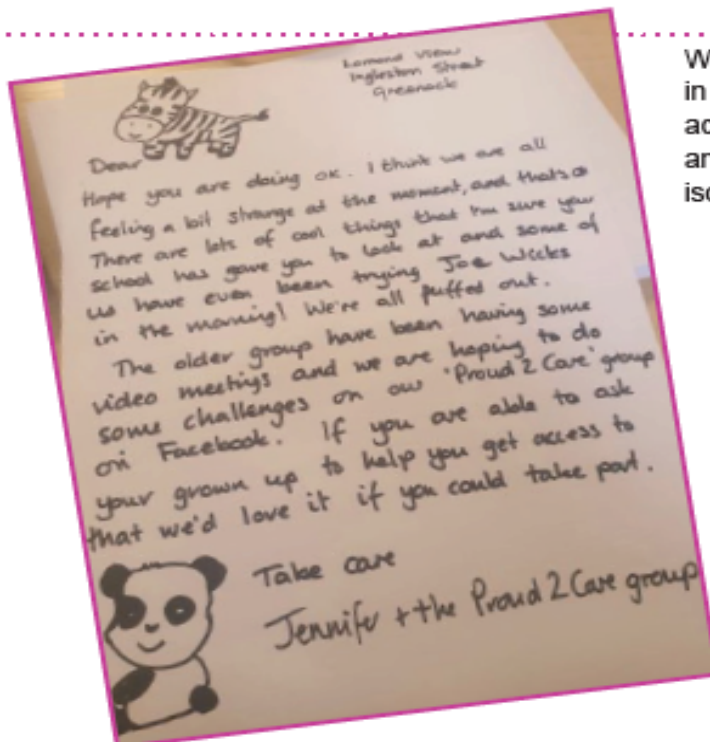 Lomond View
Ingleston Street
Greenock
Dear
Hope you are doing ok. I think we are all
feeling a bit strange at the moment, and thats ok
There are lots of cool things that I'm sure your
school has gave you to look at and some of
us have even been trying Joe Wicks
in the morning! We're all puffed out.
The older group have been having some
video meetings and we are hoping to do
some challenges on our "Proud 2 Care" group
on Facebook. If you are able to ask
your grown up to help you get access to
that we'd love it if you could take part.
Take care
Jennifer + the Proud 2 Care group
W
in
ac
an
iso